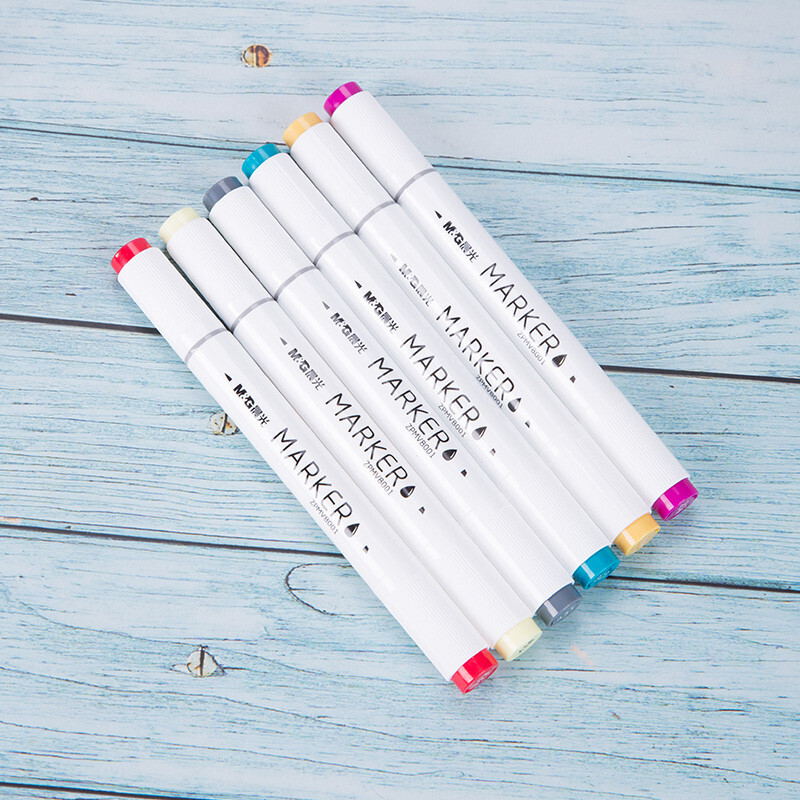 M&G晨光
MARKER
ZPMV8001
M&G晨光
MARKER
ZPMV8001
M&G晨光
MARKER
ZPMV8001
M&G晨光
MARKER
ZPMV8001
M&G晨光
MARKER
ZPMV8001
M&G晨光
MARKER
ZPMV8001